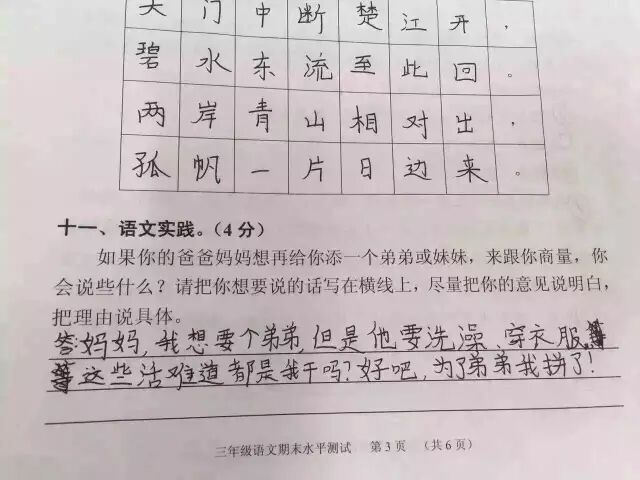 天门中断楚江开，
碧水东流至此回。
两岸青山相对出，
孤帆一片日边来。
十一、语文实践。（4分）
如果你的爸爸妈妈想再给你添一个弟弟或妹妹，来跟你商量，你
会说些什么？请把你想要说的话写在横线上，尽量把你的意见说明白，
把理由说具体。
答:妈妈,我想要个弟弟,但是他要洗澡、穿衣服等
等这些活难道都是我干吗?好吧,为了弟弟我拼了!
三年级语文期末水平测试 第3页 （共6页）